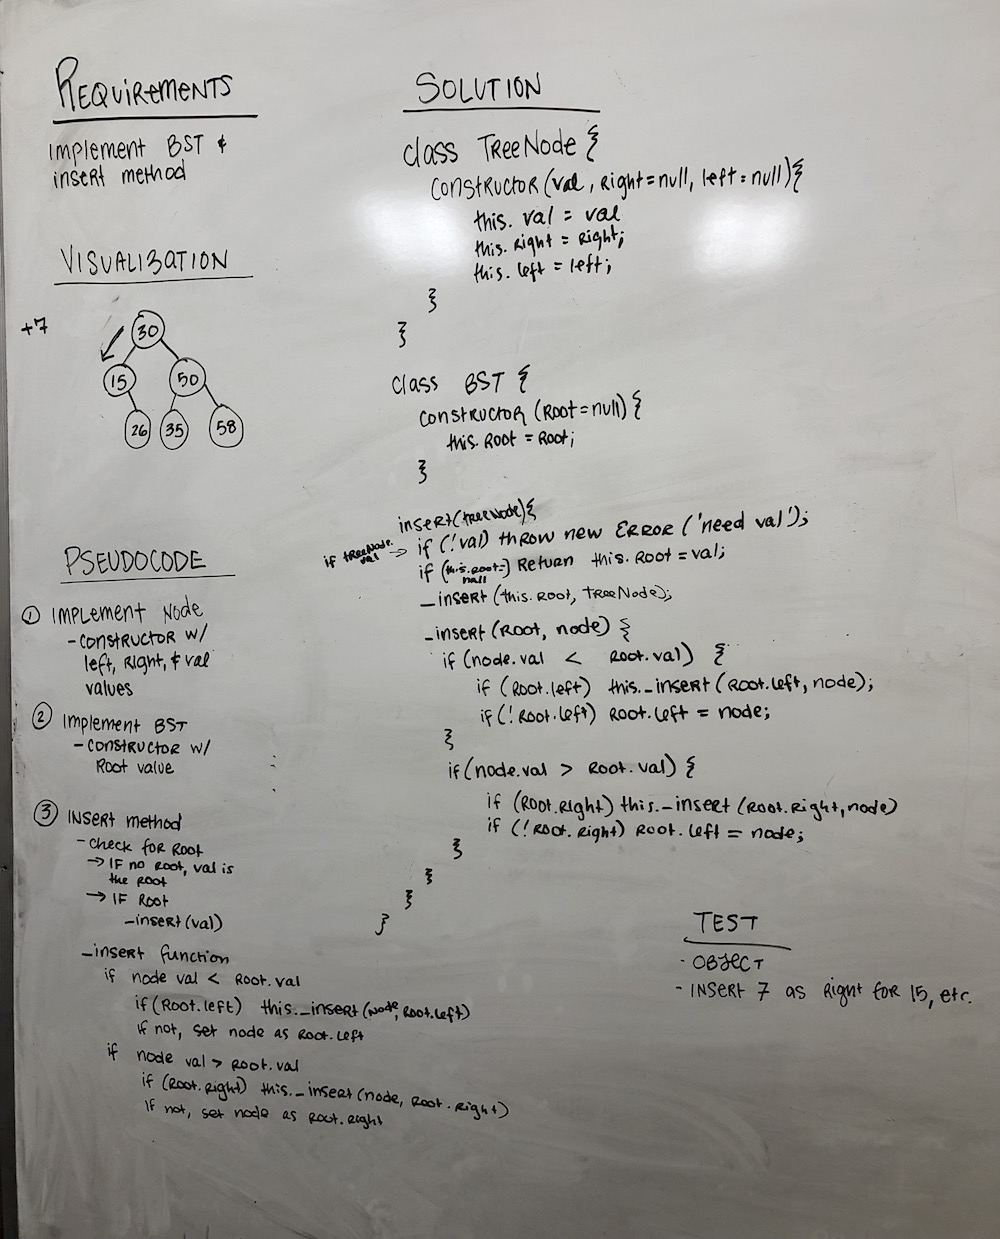 REQUIREMENTS
IMPLEMENT BST &
INSERT METHOD
VISUALIZATION
+7
30
15
50
26
35
58
PSEUDOCODE
① IMPLEMENT NODE
- CONSTRUCTOR W/
left, RIGHT, & val
values
② Implement BST
- CONSTRUCTOR W/
ROOT value
③ INSERT method
- Check for ROOT
→ IF no ROOT, val is
the ROOT
→ IF ROOT
_insert(val)
_insert function
if node val < ROOT.val
if (ROOT.left) this._insert(node, ROOT.left)
if not, set node as ROOT.left
if node val > ROOT.val
if (ROOT.Right) this._insert(node, ROOT.Right)
If not, set node as ROOT.Right
SOLUTION
class TreeNode {
CONSTRUCTOR(val, Right=null, left=null){
this.val = val
this.Right = Right;
this.left = left;
}
}
class BST {
CONSTRUCTOR (ROOT=null) {
this.ROOT = ROOT;
}
insert(treeNode){
if treeNode.val → if (!val) THROW new ERROR ('need val');
if (this.ROOT = null) Return this.ROOT = val;
_insert (this.ROOT, TreeNode);
_insert (ROOT, node) {
if (node.val < ROOT.val) {
if (ROOT.left) this._insert (ROOT.left, node);
if (!ROOT.left) ROOT.left = node;
}
if (node.val > ROOT.val) {
if (ROOT.Right) this._insert (ROOT.Right, node)
if (!ROOT.Right) ROOT.left = node;
}
}
}
}
TEST
- OBJECT
- INSERT 7 as Right for 15, etc.